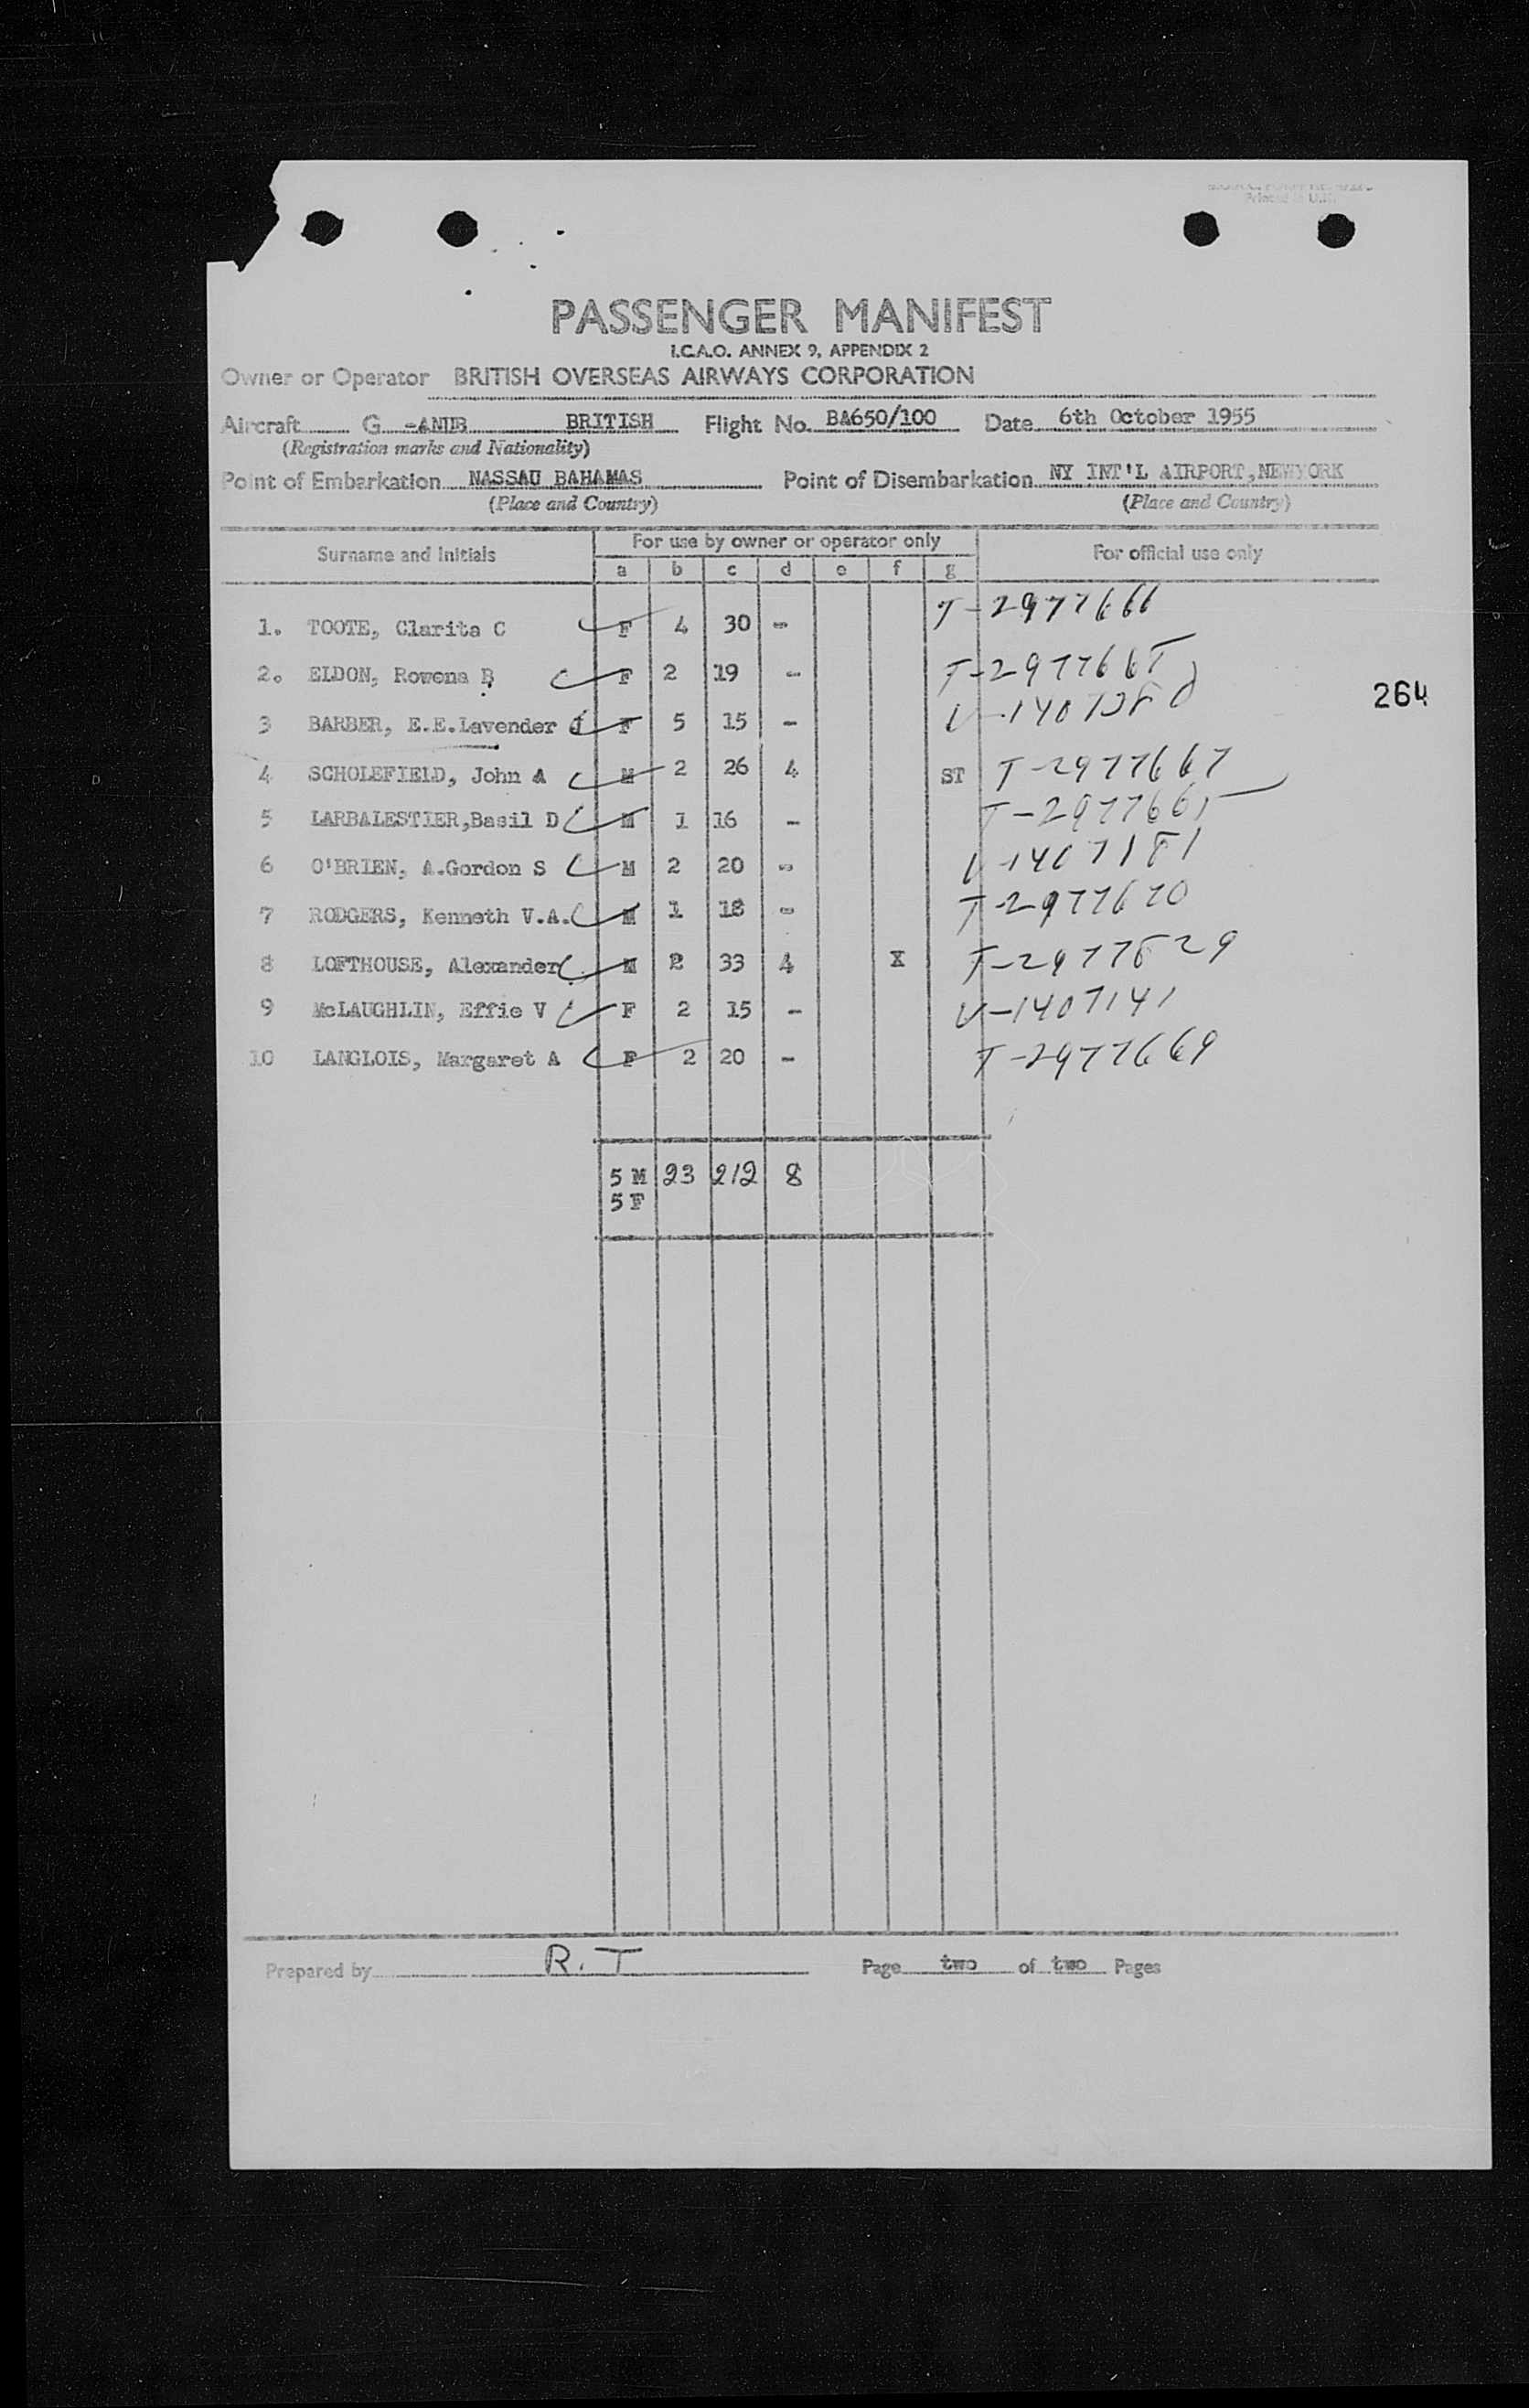 PASSENGER MANIFEST
I.C.A.O. ANNEX 9, APPENDIX 2
Owner or Operator BRITISH OVERSEAS AIRWAYS CORPORATION
Aircraft G -ANUB BRITISH Flight No. BA650/100 Date 6th October 1955
(Registration marks and Nationality)
Point of Embarkation NASSAU BAHAMAS Point of Disembarkation NY INT'L AIRPORT, NEWYORK
(Place and Country) (Place and Country)
Surname and Initials For use by owner or operator only For official use only
a b c d e f g
1. TOOTE, Clarita C F 4 30 - T-2977666
2. ELDON, Rowena B F 2 19 -
3 BARBER, E.E.Lavender J F 5 15 -
264
4 SCHOLEFIELD, John A M 2 26 4 ST T-2977667
5 LARBALESTIER,Basil D M 1 16 - T-2977665
6 O'BRIEN, A.Gordon S M 2 20 - V-1407181
7 RODGERS, Kenneth V.A. M 1 18 - T-2977670
8 LOFTHOUSE, Alexander M 2 33 4 X T-2977829
9 McLAUGHLIN, Effie V F 2 15 - V-1407141
10 LANGLOIS, Margaret A F 2 20 - T-2977669
5 M 23 212 8
5 F
Prepared by R.T Page two of two Pages